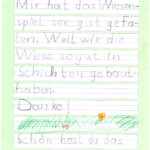 Mir hat das Wiesen-
spiel ser gut gefa-
len. Weil wir die
Wiese so gut in
Schichten gebaut
haben.
Danke!
schön hast du das